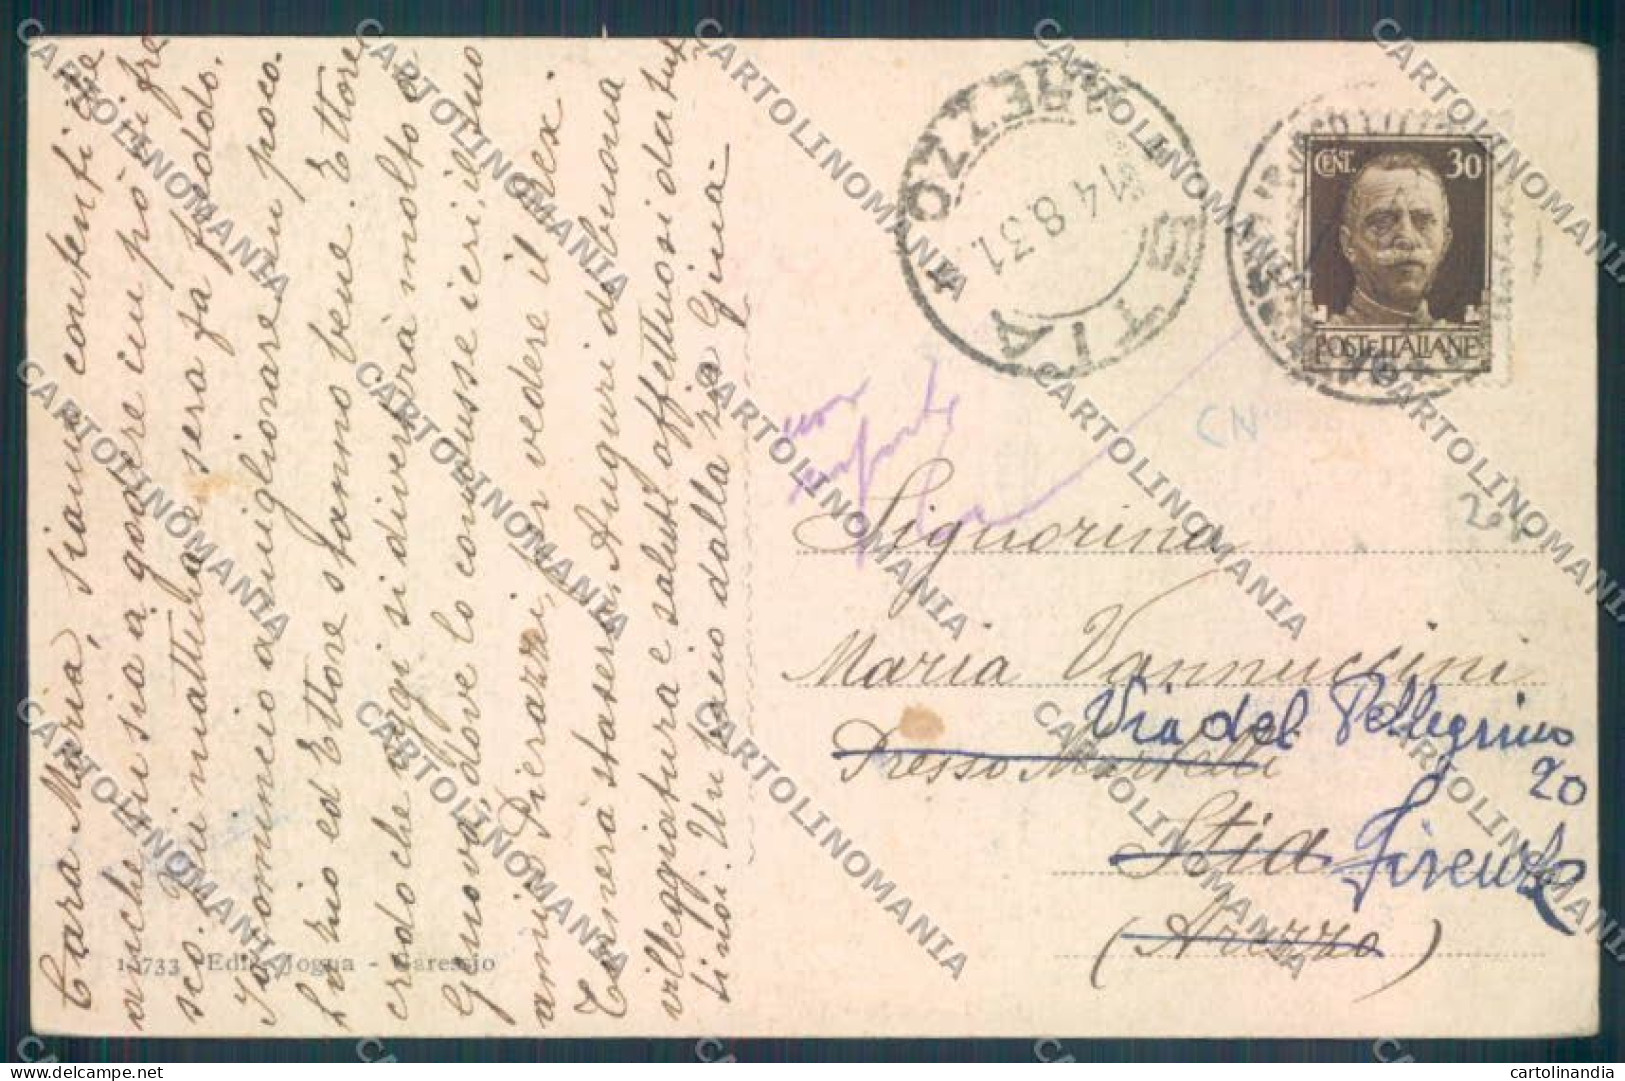 Cara Maria, siamo contenti che
anche tu sia a godere un po' di fre
sco. Qui mattina e sera fa freddo.
Io comincio a migliorare un poco.
Lo zio ed Ettore stanno bene. Ettore
credo che oggi si divertirà molto a
Genova, dove lo condusse ieri, il suo
amico Pierazzi, per vedere il Rex.
Tornerà stasera. Auguri di buona
villeggiatura e saluti affettuosi da tut
ti noi. Un bacio dalla zia Gina
1-733 - Ediz. Jogna - Garessio
STIA
* AREZZO
14.8.31.
CENT. 30
POSTE ITALIANE
CN
20
Signorina
Maria Vannuccini
Presso Martelli
Via del Pellegrino
20
Stia
Firenze
(Arezzo)
CARTOLINOMANIA
cartolinandia